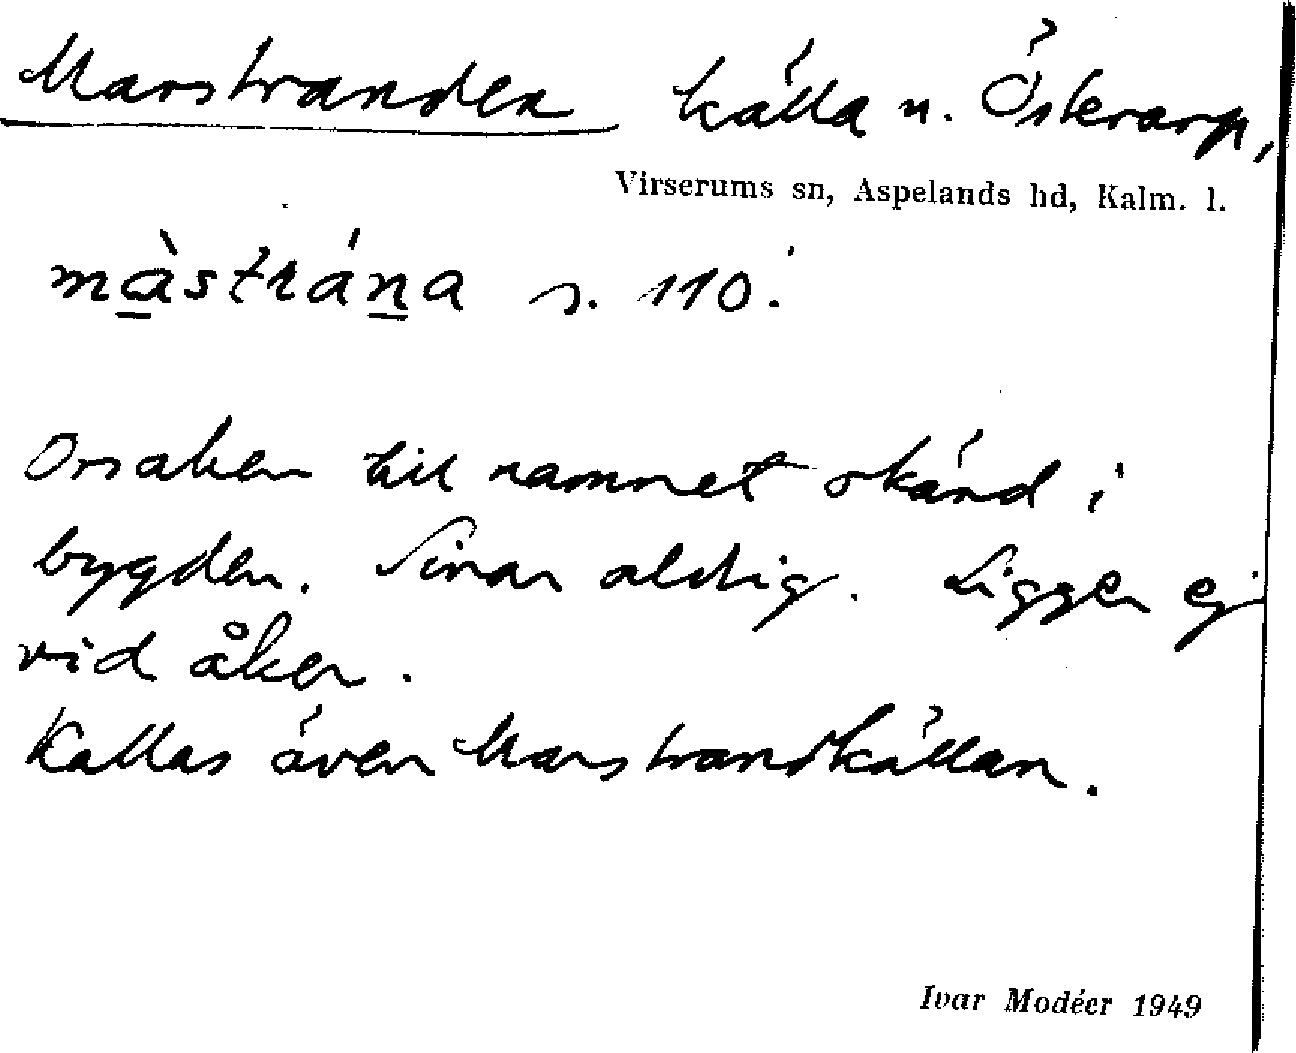 Marstranden källa n. Österarp,
Virserums sn, Aspelands hd, Kalm. l.
màstrána s. 110.
Orsaken till namnet okänd i
bygden. Sinar aldrig. Ligger ej
vid åker.
Kallas även Marstrandkällan.
Ivar Modéer 1949